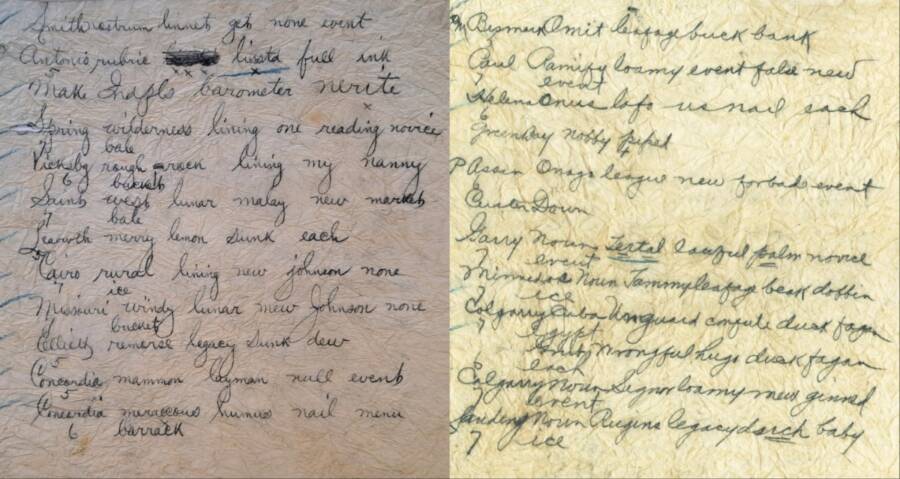 Smith nostrum linnet get none event
Antonio rubric lissta full ink
Make Indpls barometer nerite
Spring wilderness lining one reading novice
7 bale
Vicksbg rough rock lining my nanny
6 bucket
Saint west lunar malay new market
7 bale
Leavwth merry lemon sunk each
Cairo rural lining new johnson none
7 ice
Missouri windy lunar new Johnson none
bucket
Elliott removed legacy sunk dew
Concordia mammon layman null event
5
Concordia meraccous humus nail menu
6 barrack
Bismark Omit leafage buck bank
Paul Ramify loamy event false new
7 event
Helena Onus lofo us nail each
6
Greenbay nobby piped
P Assin Onago league new forbade event
6
Custer Down
Garry Noun Tertal lawful palm novice
7 event
Minnedos Noun Jammy leafage beak dobbin
7 ice
Calgarry Cuba Unguard confute duck fagan
7 Egypt
Wrongful hugo duck fagan
each
Calgarry Noun Signor loamy new ginned
7 event
Landing Noun Rugins legacy duck baby
7 ice